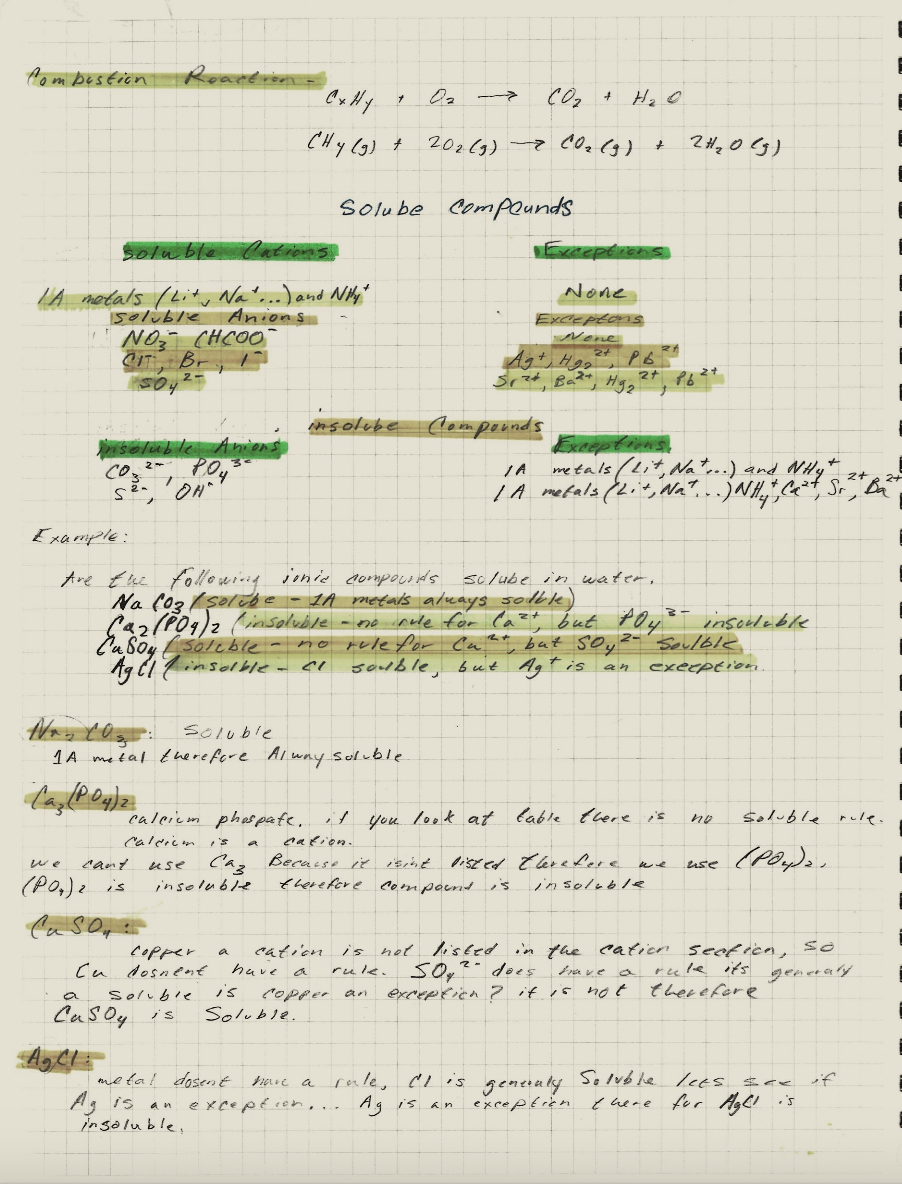 Combustion Reaction -
CxHy + O₂ → CO₂ + H₂O
CH₄(g) + 2O₂(g) → CO₂(g) + 2H₂O(g)
Solube compounds
soluble Cations Exceptions
1A metals (Li⁺, Na⁺...) and NH₄⁺ None
soluble Anions Exceptons
NO₃⁻ CHCOO⁻ None
Cl⁻, Br, I⁻ Ag⁺, Hg₂²⁺, Pb²⁺
SO₄²⁻ Sr²⁺, Ba²⁺, Hg₂²⁺, Pb²⁺
insolube Compounds
insoluble Anions Exceptions
CO₃²⁻, PO₄³⁻ 1A metals (Li⁺, Na⁺...) and NH₄⁺
S²⁻, OH⁻ 1A metals (Li⁺, Na⁺...) NH₄⁺, Ca²⁺, Sr²⁺, Ba²⁺
Example:
Are the following ionic compounds solube in water.
Na CO₃ (solube - 1A metals always solble)
Ca₂(PO₄)₂ (insoluble - no rule for Ca²⁺, but PO₄³⁻ insoluble
CuSO₄ (soluble - no rule for Cu²⁺, but SO₄²⁻ Soulble
AgCl (insolble - Cl souble, but Ag⁺ is an exception.
Na₂CO₃: Soluble
1A metal therefore Alwny soluble
Ca₃(PO₄)₂
calcium phospate. if you look at table there is no soluble rule.
calcium is a cation.
we cant use Ca₃ Because it isint listed therefore we use (PO₄)₂,
(PO₄)₂ is insoluble therefore compound is insoluble
CuSO₄:
copper a cation is not listed in the cation section, so
Cu dosnent have a rule. SO₄²⁻ does have a rule its generaly
a soluble is copper an exception? it is not therefore
CuSO₄ is Soluble.
AgCl:
metal dosent have a rule, Cl is generaly Soluble lets see if
Ag is an exception... Ag is an exception there for AgCl is
insoluble.